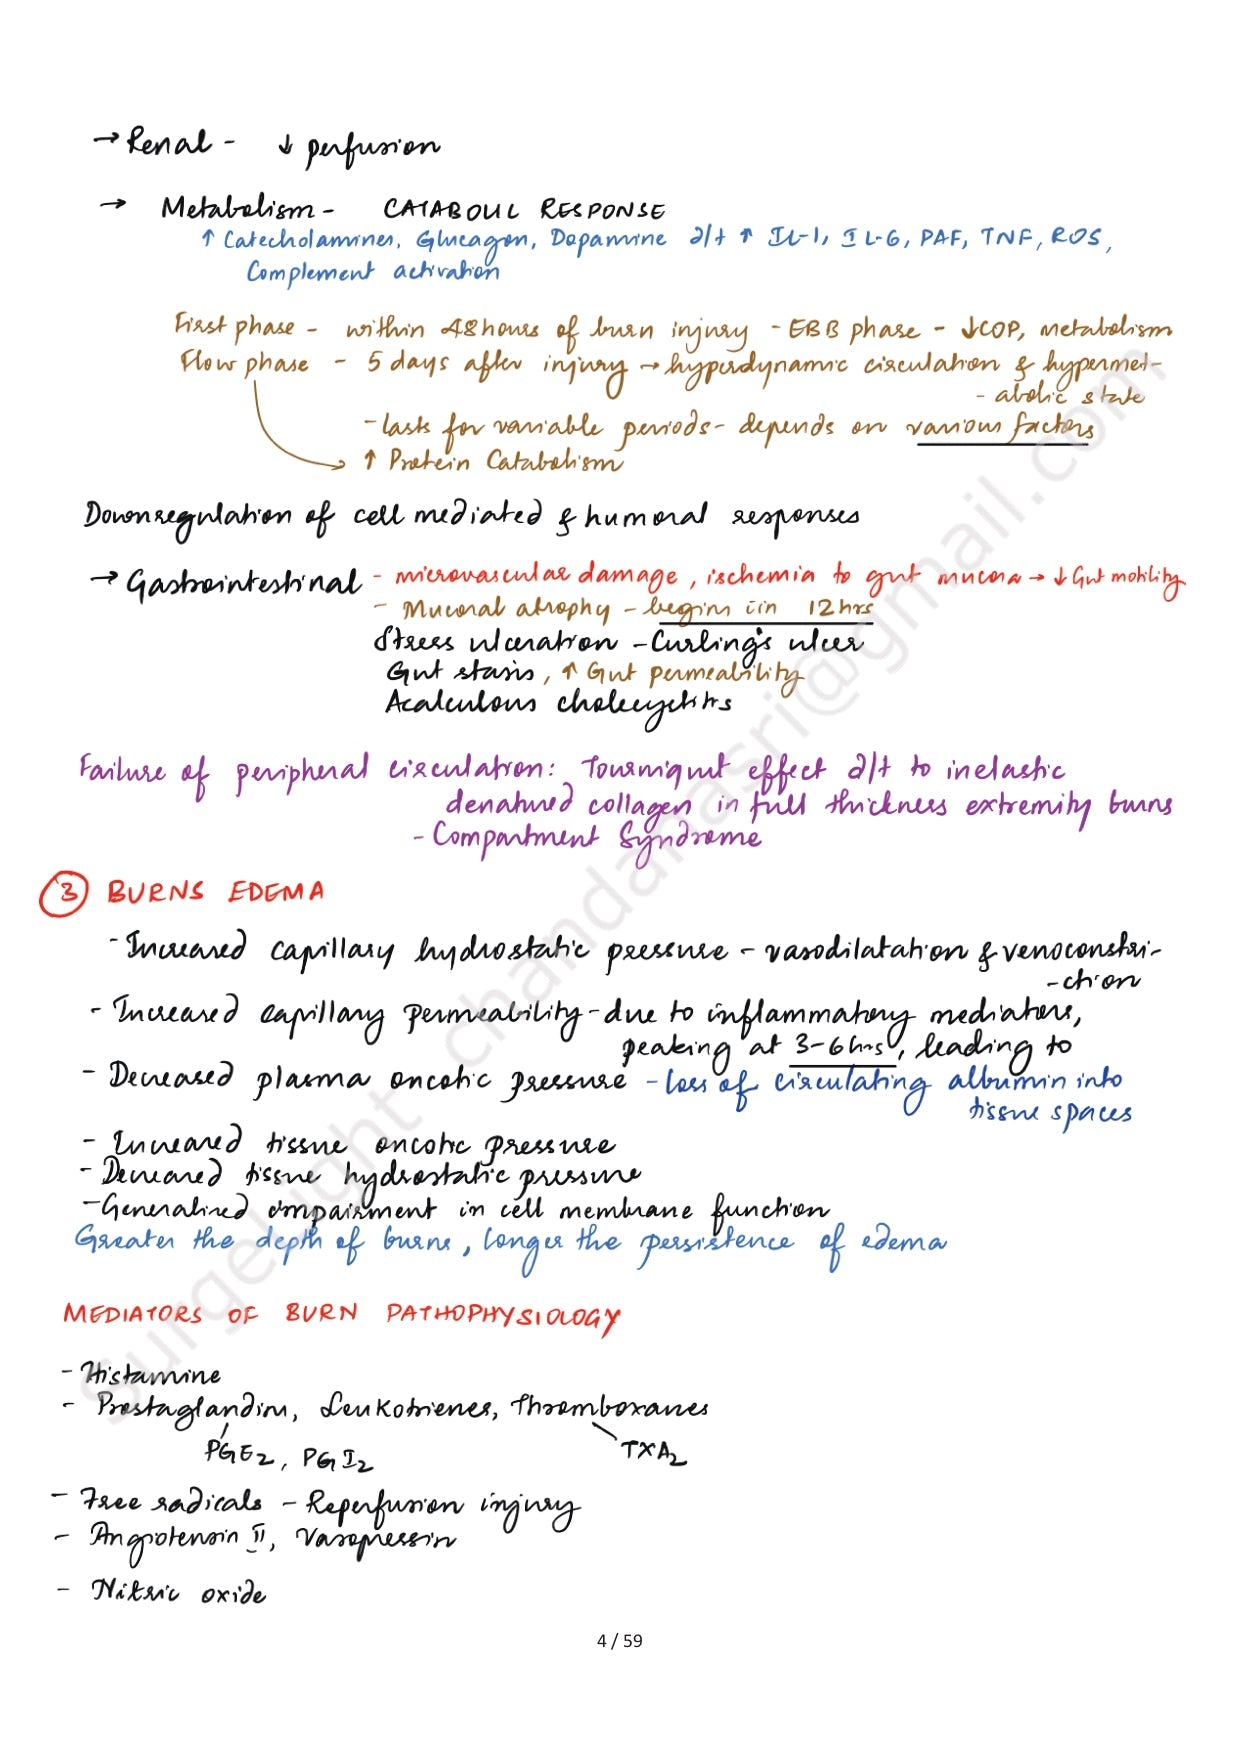 → Renal - ↓ perfusion
→ Metabolism - CATABOLIC RESPONSE
↑ Catecholamines, Glucagon, Dopamine d/t ↑ IL-1, IL-6, PAF, TNF, ROS,
Complement activation
First phase - within 48 hours of burn injury - EBB phase - ↓COP, metabolism
Flow phase - 5 days after injury → hyperdynamic circulation & hypermet-
- abolic state
- lasts for variable periods - depends on various factors
↑ Protein Catabolism
Downregulation of cell mediated & humoral responses
→ Gastrointestinal - microvascular damage, ischemia to gut mucosa → ↓ Gut motility
- Mucosal atrophy - begins iin 12hrs
Stress ulceration - Curling's ulcer
Gut stasis, ↑ Gut permeability
Acalculous cholecystitis
Failure of peripheral circulation: Tourniquet effect d/t to inelastic
denatured collagen in full thickness extremity burns
- Compartment Syndrome
3 BURNS EDEMA
- Increased capillary hydrostatic pressure - vasodilatation & venoconstri-
- ction
- Increased capillary permeability - due to inflammatory mediators,
peaking at 3-6 hrs, leading to
- Decreased plasma oncotic pressure - loss of circulating albumin into
tissue spaces
- Increased tissue oncotic pressure
- Decreased tissue hydrostatic pressure
- Generalised impairment in cell membrane function
Greater the depth of burns, longer the persistence of edema
MEDIATORS OF BURN PATHOPHYSIOLOGY
- Histamine
- Prostaglandins, Leukotrienes, Thromboxanes
PGE2, PGI2 TXA2
- Free radicals - Reperfusion injury
- Angiotensin II, Vasopressin
- Nitric oxide
4 / 59
surgelight_chandanasri@gmail.com